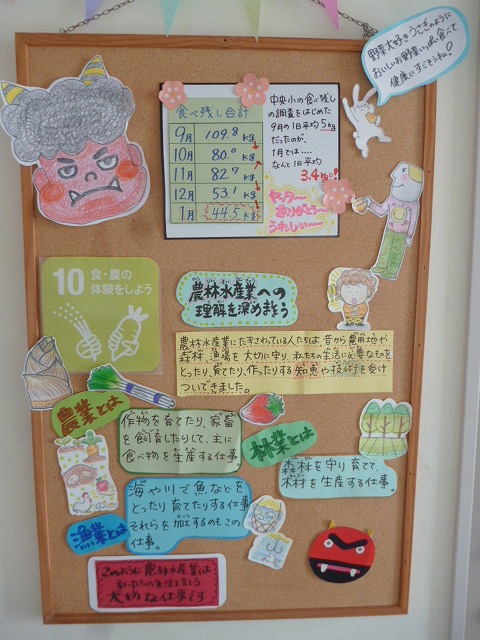 野菜大好きうさぎのように
おいしいお野菜いっぱい食べて
健康にすごそうね!
食べ残し合計
9月 109.8 kg
10月 80.0 kg
11月 82.7 kg
12月 53.1 kg
1月 44.5 kg
中央小の食べ残し
の調査をはじめた
9月の1日平均5kg
だったのが、
1月では....
なんと1日平均
3.4kgに!
ヤッター
ありがとう~
うれしい~
10 食・農の
体験をしよう
農林水産業への
理解を深めよう
農林水産業にたずさわっている人たちは昔から農用地や
森林、漁場を大切に守り、私たちの生活に必要なものを
とったり、育てたり、作ったりする知恵や技術を受け
ついできました。
農業とは
作物を育てたり、家畜
を飼育したりして、主に
食べ物を生産する仕事
林業とは
森林を守り育てて、
木材を生産する仕事。
漁業とは
海や川で魚などを
とったり育てたりする仕事
それらを加工するのもこの
仕事。
このように農林水産業は
私たちの生活を支える
大切な仕事です